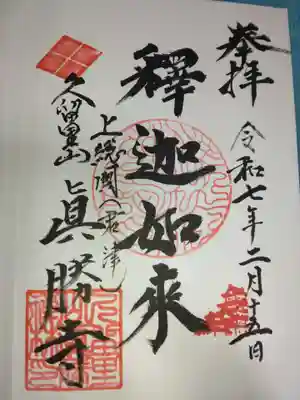 奉拝
令和七年二月十五日
釋迦如來
上総國(君津)
久留里山
眞勝寺